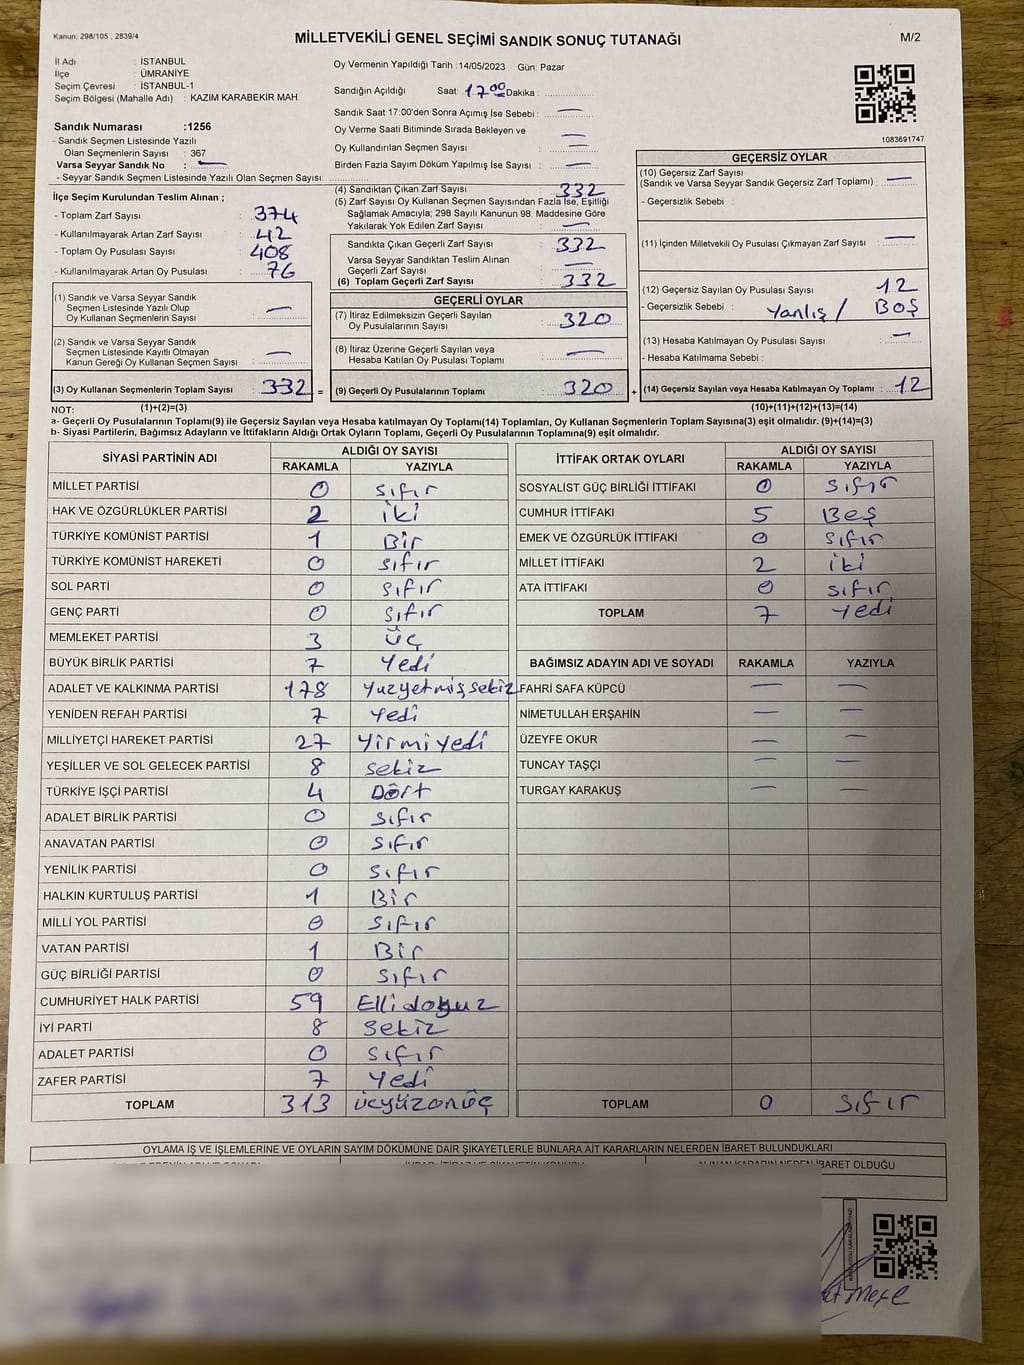 Kanun: 298/105 , 2839/4
MİLLETVEKİLİ GENEL SEÇİMİ SANDIK SONUÇ TUTANAĞI
M/2
İl Adı : İSTANBUL
İlçe : ÜMRANİYE
Seçim Çevresi : İSTANBUL-1
Seçim Bölgesi (Mahalle Adı) : KAZIM KARABEKİR MAH.
Oy Vermenin Yapıldığı Tarih :14/05/2023 Gün: Pazar
Sandığın Açıldığı Saat: 17 00 Dakika :
Sandık Saat 17:00'den Sonra Açmış İse Sebebi : —
Oy Verme Saati Bitiminde Sırada Bekleyen ve
Oy Kullandırılan Seçmen Sayısı : —
Birden Fazla Sayım Döküm Yapılmış İse Sayısı : —
1083691747
Sandık Numarası :1256
- Sandık Seçmen Listesinde Yazılı
Olan Seçmenlerin Sayısı : 367
Varsa Seyyar Sandık No : —
- Seyyar Sandık Seçmen Listesinde Yazılı Olan Seçmen Sayısı:
İlçe Seçim Kurulundan Teslim Alınan ;
- Toplam Zarf Sayısı : 374
- Kullanılmayarak Artan Zarf Sayısı : 42
- Toplam Oy Pusulası Sayısı : 408
- Kullanılmayarak Artan Oy Pusulası : 76
(1) Sandık ve Varsa Seyyar Sandık
Seçmen Listesinde Yazılı Olup
Oy Kullanan Seçmenlerin Sayısı : —
(2) Sandık ve Varsa Seyyar Sandık
Seçmen Listesinde Kayıtlı Olmayan
Kanun Gereği Oy Kullanan Seçmen Sayısı : —
(3) Oy Kullanan Seçmenlerin Toplam Sayısı : 332 =
(4) Sandıktan Çıkan Zarf Sayısı : 332
(5) Zarf Sayısı Oy Kullanan Seçmen Sayısından Fazla İse, Eşitliği
Sağlamak Amacıyla; 298 Sayılı Kanunun 98. Maddesine Göre
Yakılarak Yok Edilen Zarf Sayısı : —
Sandıkta Çıkan Geçerli Zarf Sayısı : 332
Varsa Seyyar Sandıktan Teslim Alınan
Geçerli Zarf Sayısı : —
(6) Toplam Geçerli Zarf Sayısı : 332
GEÇERLİ OYLAR
(7) İtiraz Edilmeksizin Geçerli Sayılan
Oy Pusulalarının Sayısı : 320
(8) İtiraz Üzerine Geçerli Sayılan veya
Hesaba Katılan Oy Pusulası Toplamı : —
(9) Geçerli Oy Pusulalarının Toplamı : 320 +
GEÇERSİZ OYLAR
(10) Geçersiz Zarf Sayısı
(Sandık ve Varsa Seyyar Sandık Geçersiz Zarf Toplamı) : —
- Geçersizlik Sebebi :
(11) İçinden Milletvekili Oy Pusulası Çıkmayan Zarf Sayısı : —
(12) Geçersiz Sayılan Oy Pusulası Sayısı : 12
- Geçersizlik Sebebi : Yanlış / BOŞ
(13) Hesaba Katılmayan Oy Pusulası Sayısı : —
- Hesaba Katılmama Sebebi :
(14) Geçersiz Sayılan veya Hesaba Katılmayan Oy Toplamı : 12
NOT: (1)+(2)=(3) (10)+(11)+(12)+(13)=(14)
a- Geçerli Oy Pusulalarının Toplamı(9) ile Geçersiz Sayılan veya Hesaba katılmayan Oy Toplamı(14) Toplamları, Oy Kullanan Seçmenlerin Toplam Sayısına(3) eşit olmalıdır. (9)+(14)=(3)
b- Siyasi Partilerin, Bağımsız Adayların ve İttifakların Aldığı Ortak Oyların Toplamı, Geçerli Oy Pusulalarının Toplamına(9) eşit olmalıdır.
SİYASİ PARTİNİN ADI ALDIĞI OY SAYISI
RAKAMLA YAZIYLA
MİLLET PARTİSİ 0 sıfır
HAK VE ÖZGÜRLÜKLER PARTİSİ 2 iki
TÜRKİYE KOMÜNİST PARTİSİ 1 Bir
TÜRKİYE KOMÜNİST HAREKETİ 0 sıfır
SOL PARTİ 0 sıfır
GENÇ PARTİ 0 sıfır
MEMLEKET PARTİSİ 3 üç
BÜYÜK BİRLİK PARTİSİ 7 Yedi
ADALET VE KALKINMA PARTİSİ 178 Yuzyetmişsekiz
YENİDEN REFAH PARTİSİ 7 Yedi
MİLLİYETÇİ HAREKET PARTİSİ 27 Yirmiyedi
YEŞİLLER VE SOL GELECEK PARTİSİ 8 sekiz
TÜRKİYE İŞÇİ PARTİSİ 4 Dört
ADALET BİRLİK PARTİSİ 0 sıfır
ANAVATAN PARTİSİ 0 sıfır
YENİLİK PARTİSİ 0 sıfır
HALKIN KURTULUŞ PARTİSİ 1 Bir
MİLLİ YOL PARTİSİ 0 sıfır
VATAN PARTİSİ 1 Bir
GÜÇ BİRLİĞİ PARTİSİ 0 sıfır
CUMHURİYET HALK PARTİSİ 59 Ellidokuz
İYİ PARTİ 8 sekiz
ADALET PARTİSİ 0 sıfır
ZAFER PARTİSİ 7 Yedi
TOPLAM 313 üçyüzonüç
İTTİFAK ORTAK OYLARI ALDIĞI OY SAYISI
RAKAMLA YAZIYLA
SOSYALİST GÜÇ BİRLİĞİ İTTİFAKI 0 sıfır
CUMHUR İTTİFAKI 5 Beş
EMEK VE ÖZGÜRLÜK İTTİFAKI 0 sıfır
MİLLET İTTİFAKI 2 iki
ATA İTTİFAKI 0 sıfır
TOPLAM 7 Yedi
BAĞIMSIZ ADAYIN ADI VE SOYADI RAKAMLA YAZIYLA
FAHRİ SAFA KÜPCÜ — —
NİMETULLAH ERŞAHİN — —
ÜZEYFE OKUR — —
TUNCAY TAŞÇI — —
TURGAY KARAKUŞ — —
TOPLAM 0 sıfır
OYLAMA İŞ VE İŞLEMLERİNE VE OYLARIN SAYIM DÖKÜMÜNE DAİR ŞİKAYETLERLE BUNLARA AİT KARARLARIN NELERDEN İBARET BULUNDUKLARI
ALINAN KARARIN NEDEN İBARET OLDUĞU